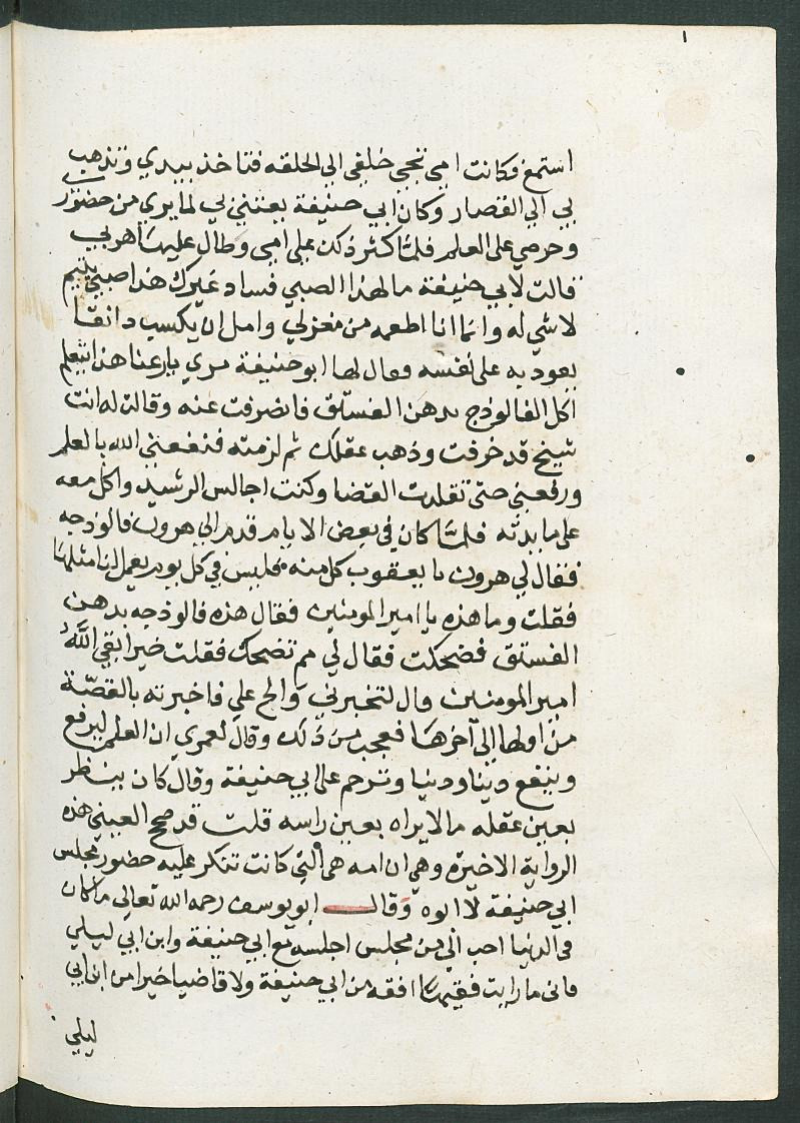 ١
استمع فكانت امي تجي خلفي الي الحلقه فتاخذ بيدي وتذهب
بي الي القصار وكان ابي حنيفة يعتني بي لما يري من حضور
وحرصي علي العلم فلما كثر ذلك علي امي وطال عليها هربي
قالت لابي حنيفة ما لهذا الصبي فساد غيرك هذا صبي يتيم
لا شي له وانما انا اطعمه من مغزلي وامل ان يكسب دانقا
يعود به على نفسه فقال لها ابو حنيفة مري يا رعنا هذا يتعلم
اكل الفالوذج بدهن الفستق فانصرفت عنه وقالت له انت
شيخ قد خرفت وذهب عقلك ثم لزمته فنفعني الله بالعلم
ورفعني حتى تقلدت القضا وكنت اجالس الرشيد واكل معه
على مايدته فلما كان في بعض الايام قدم الي هرون فالوذجه
فقال لي هرون يا يعقوب كل منه فليس في كل يوم يعمل لنا مثلها
فقلت وما هذه يا امير المومنين فقال هذه فالوذجه بدهن
الفستق فضحكت فقال لي مم تضحك فقلت خيرا بقي الله
امير المومنين قال لتخبرني والح علي فاخبرته بالقصة
من اولها الي آخرها فعجب من ذلك وقال لعمري ان العلم ليرفع
وينفع دينا ودنيا وترحم على ابي حنيفة وقال كان ينظر
بعين عقله ما لا يراه بعين راسه قلت قد صحح العيني هذه
الرواية الاخيرة وهي ان امه هي التي كانت تنكر عليه حضور مجلس
ابي حنيفة لا ابوه وقال ابو يوسف رحمه الله تعالي ما كان
في الدنيا احب الي من مجلس اجلسه مع ابي حنيفة وابن ابي ليلي
فاني ما رايت فقيها افقه من ابي حنيفة ولا قاضيا خيرا من ابن ابي
ليلي